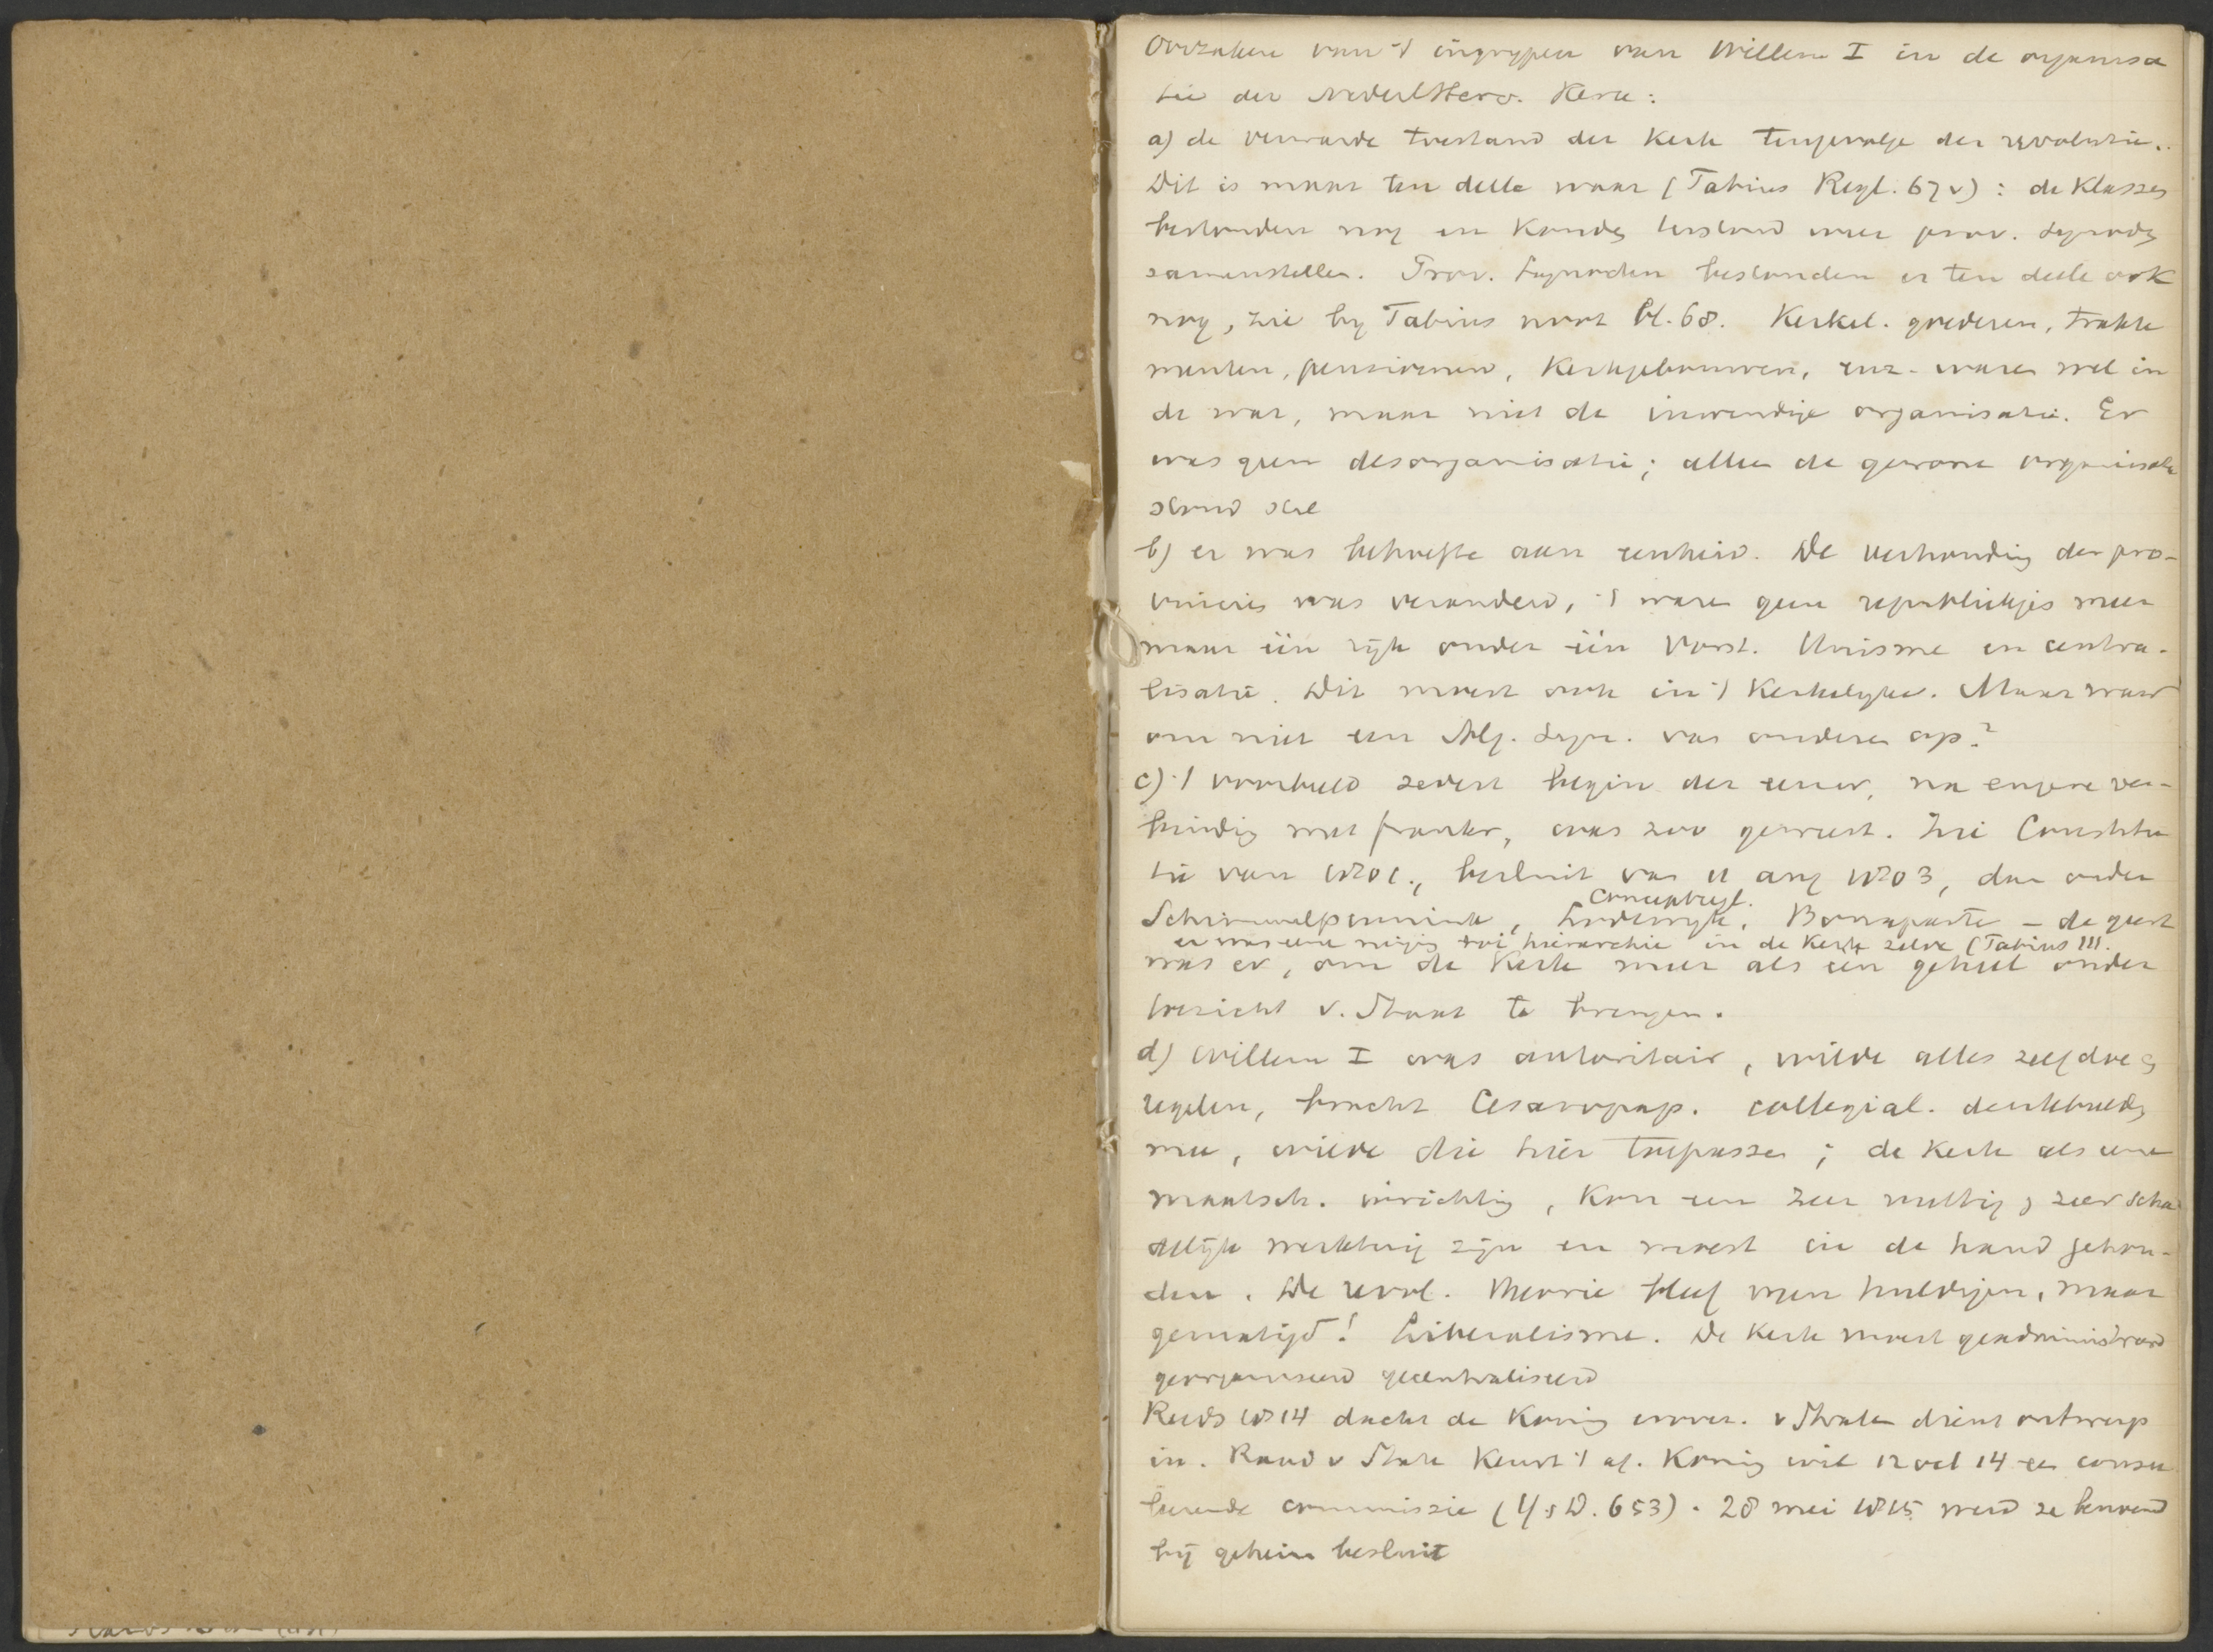 Oorzaken van 't ingrypen van Willem I in de organisa
tie der Nederl Herv. Kerk:
a) de verwarde toestand der Kerk tengevolge der revolutie.
Dit is maar ten deele waar ( Regl. 67v): de Klasses
bestonden nog en Konden terstond weer prov. synodes
samenstellen. Prov. Synoden bestonden er ten deele ook
nog, zie by noot bl. 68. Kerkel. goederen, trakte
menten, pensioenen, Kerkgebouwen, enz. waren wel in
de war, maar niet de inwendige organisatie. Er
was geen desorganisatie; alleen de gewone organisatie
stond stil
b) er was behoefte aan eenheid. De verhouding der pro-
vincies was veranderd, 't waren geen republiekjes meer
maar één ryk onder één Vorst. Unisme en centra-
lisatie. Dit moest ook in 't Kerkelyke. Maar waar
om niet een Alg. Syn. van onderen op?
c) 't voorbeeld sedert begin der eeuw, na engere ver-
binding met frankr, was zoo geweest. Zie Constitu
tie van 1801, besluit van 11 aug 1803, dan onder
conceptregl.
Schimmelpennink, Lodewyk, Bonaparte – de geest
er was eene neiging tot hierarchie in de Kerk zelve (
was er, om de Kerk meer als één geheel onder
toezicht v. Staat te brengen.
d) Willem I was autoritair, wilde alles zelf doen
regelen, bracht Cesaropap. collegial. denkbeelden
mee, wilde die hier toepassen; de Kerk als eene
maatsch. inrichting, Kon een zeer nuttig en zeer scha
delijk werktuig zijn en moest in de hand gehou-
den. De revol. theorie bleef men huldigen, maar
gematigd! Liberalisme. De Kerk moest geadministreerd
georganiseerd gecentraliseerd
Reeds 1814 dacht de Koning erover. v Stralen dient ontwerp
in. Raad v State Keurt 't af. Koning wil 12 Oct 14 een consu
leerende commissie (Y & D. 653). 28 mei 1815 werd ze benoemd
bij geheim besluit